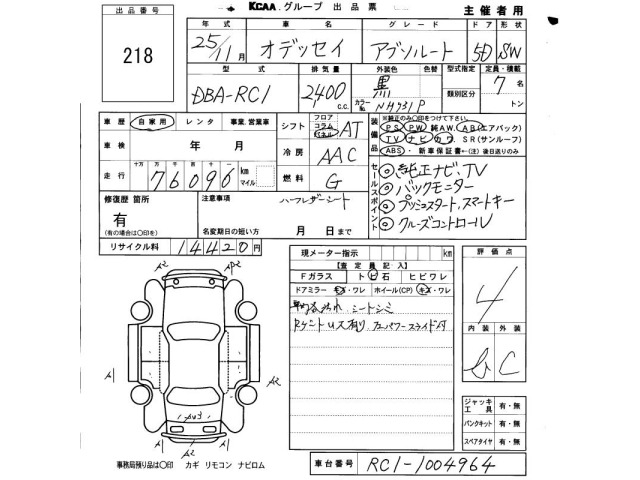 KCAA グループ 出品票
主催者用
出品番号
218
年式 車名 グレード ドア 形状
25/11月 オデッセイ アブソルート 5D SW
型式 排気量 外装色 色替 型式指定 定員・積載
DBA-RC1 2,400 c.c. 黒 カラーNo. NH731P 類別区分 7名 トン
車歴 自家用 レンタ 事業、営業車
車検 年 月
走行 十万 万 千 百 十 一 76096 km マイル
シフト フロア コラム パネル AT
冷房 AAC
燃料 G
装備品
※純正のみ〇印をつけて下さい。
PS PW 純AW. AB(エアバック)
TV ナビ カワ SR(サンルーフ)
ABS・新車保証書←(注)後日送りのみ
セールスポイント
◎純正ナビ、TV
◎バックモニター
◎プッシュスタート、スマートキー
◎クルーズコントロール
修復歴 箇所
有
(有の場合は〇印を)
注意事項
ハーフレザーシート
名変期日の短い方 月 日まで
リサイクル料 14420円
現メーター指示 km
【査定員記入】
Fガラス トビ石 ヒビワレ
ドアミラー キズ・ワレ ホイール(CP) キズ・ワレ
シートシミ
有り パワースライド付
評価点
4
内装 外装
C
ジャッキ工具 有・無
パンクキット 有・無
スペアタイヤ 有・無
A2 AP2
A1 A2
A1 A2
A2
事務局預り品は〇印 カギ リモコン ナビロム
車台番号 RC1-1004964